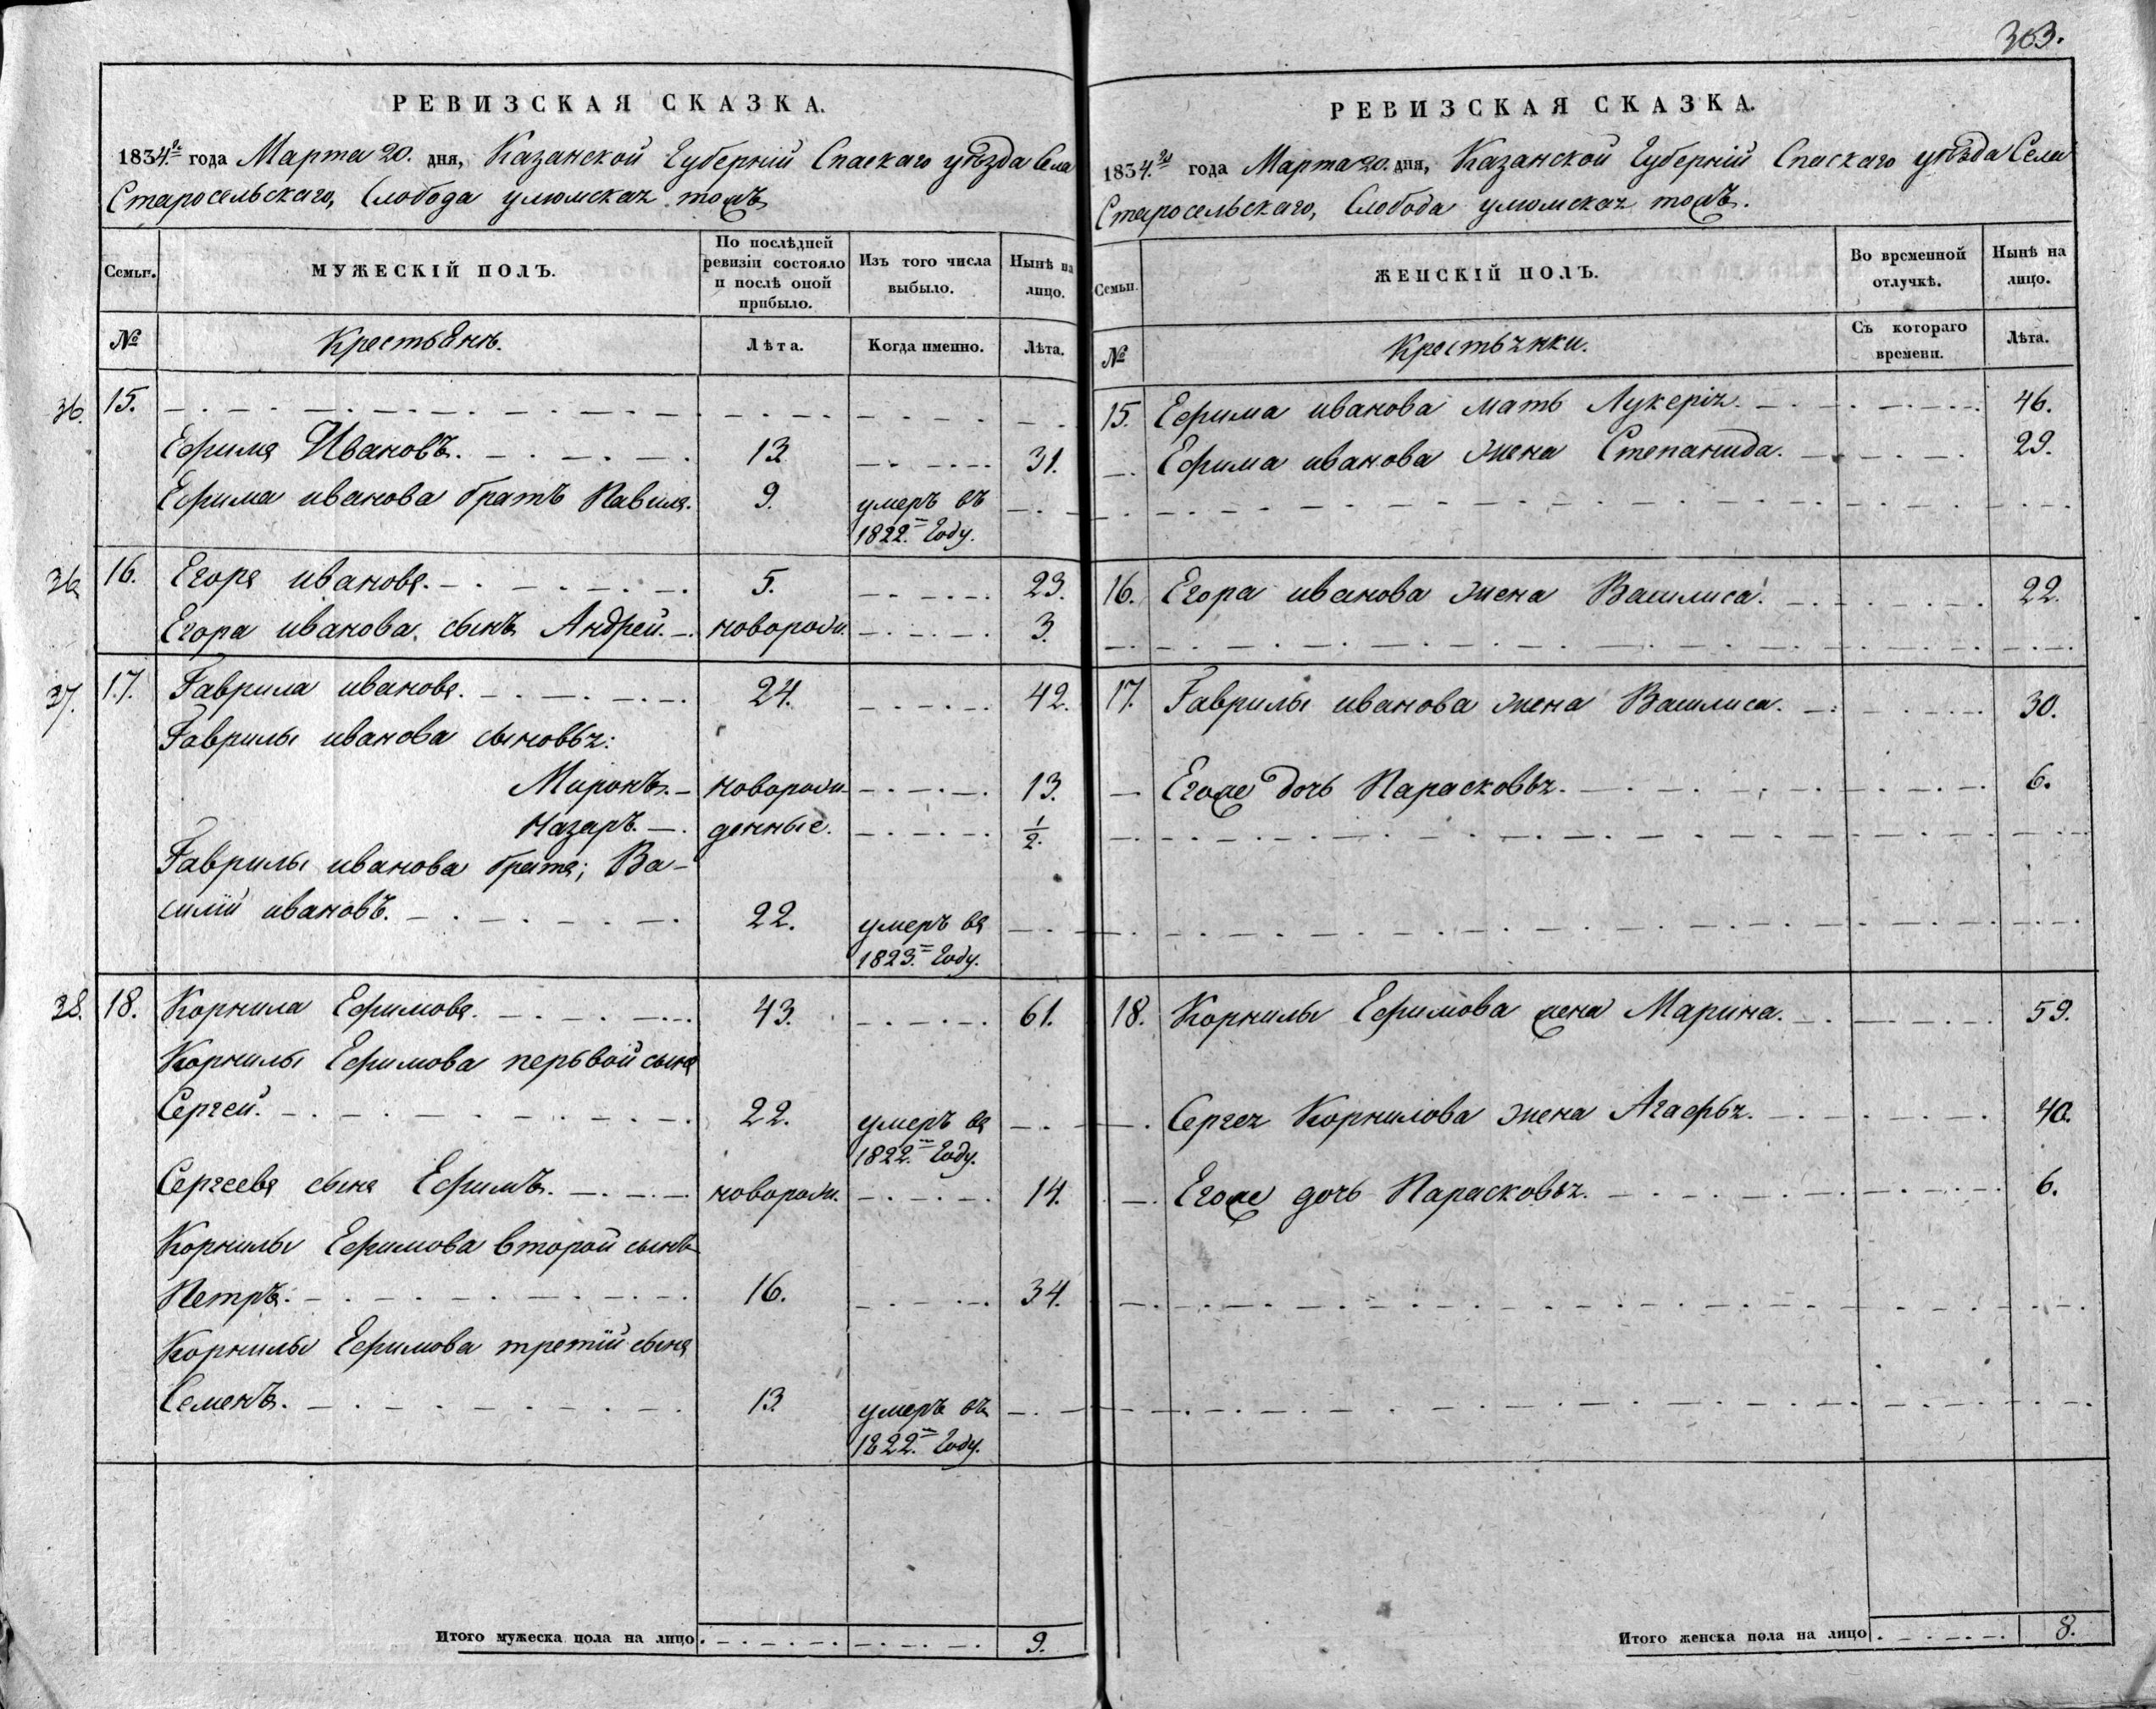 303.
РЕВИЗСКАЯ СКАЗКА.
1834.го года Марта 20. дня, Казанской Губерніи Спаскаго уѣзда Села
Старосельскаго, Слобода улюмская тожъ
Семьи.
МУЖЕСКІЙ ПОЛЪ.
По послѣдней ревизіи состояло и послѣ оной прибыло.
Изъ того числа выбыло.
Нынѣ на лицо.
№
Крестьянъ.
Лѣта.
Когда именно.
Лѣта.
36. 15.
Ефимъ Ивановъ. 13 31.
Ефима иванова братъ Павилъ. 9. умеръ въ
1822.м Году.
36 16. Егоръ ивановъ. 5. 23.
Егора иванова. сынъ Андрей. новорожд. 3.
37. 17. Гаврила ивановъ. 24. 42.
Гаврилы иванова сыновья:
Миронъ. новорож 13.
Назаръ. денные. 1/2.
Гаврилы иванова братъ; Ва-
силій ивановъ. 22. умеръ въ
1823.м Году.
38. 18. Корнила Ефимовъ. 43. 61.
Корнилы Ефимова первой сынъ
Сергей. 22. умеръ въ
1822.м Году.
Сергеевъ сынъ Ефимъ. новорож. 14.
Корнилы Ефимова второй сынъ
Петръ. 16. 34.
Корнилы Ефимова третій сынъ
Семенъ. 13. умеръ въ
1822.м Году.
Итого мужеска пола на лицо 9.
РЕВИЗСКАЯ СКАЗКА.
1834.го года Марта 20. дня, Казанской Губерніи Спаскаго уѣзда Села
Старосельскаго, Слобода улюмская тожъ.
Семьи.
ЖЕНСКІЙ ПОЛЪ.
Во временной отлучкѣ.
Нынѣ на лицо.
№
Крестьянки.
Съ котораго времени.
Лѣта.
15. Ефима иванова мать Лукерія. 46.
Ефима иванова жена Степанида. 29.
16. Егора иванова жена Василиса. 22.
17. Гаврилы иванова жена Василиса. 30.
Егоже дочь Парасковья. 6.
18. Корнилы Ефимова жена Марина. 59.
Сергея Корнилова жена Агафья. 40.
Егоже дочь Парасковья. 6.
Итого женска пола на лицо 8.